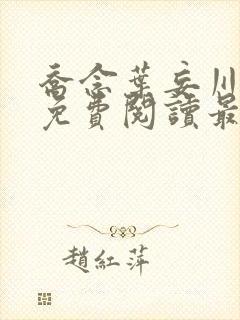 喬念葉妄川
免費閱讀最
趙紅萍